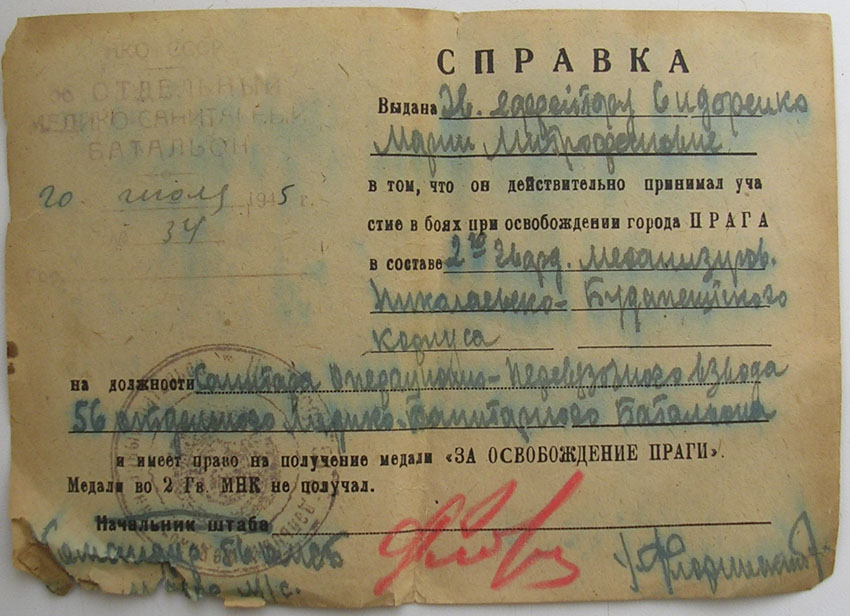 НКО СССР
56 ОТДЕЛЬНЫЙ
МЕДИКО-САНИТАРНЫЙ
БАТАЛЬОН
20 июля 1945 г.
№ 34
СПРАВКА
Выдана Гв. ефрейтору Сидоренко
Марии Митрофановне
в том, что он действительно принимал уча
стие в боях при освобождении города ПРАГА
в составе 2го Гвард. механизиров.
Николаевско-Будапештского
корпуса
на должности Санитара Операционно-перевязочного взвода
56 отдельного Медико-Санитарного Батальона
и имеет право на получение медали «ЗА ОСВОБОЖДЕНИЕ ПРАГИ».
Медали во 2 Гв. МНК не получал.
Начальник штаба
56 омсб
м/с.